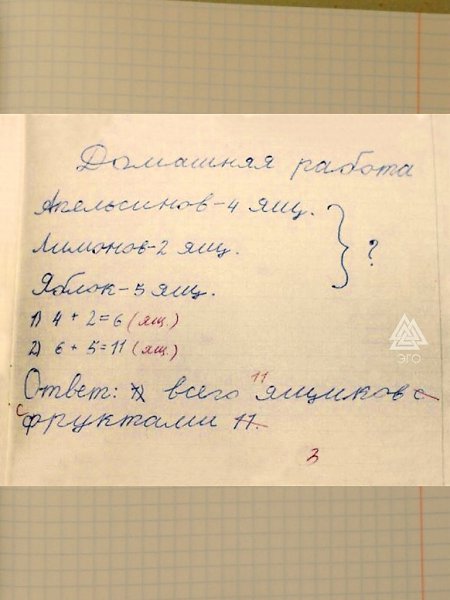 Домашняя работа
Апельсинов-4 ящ.
Лимонов-2 ящ.
?
Яблок-5 ящ.
1) 4 + 2 = 6 (ящ.)
2) 6 + 5 = 11 (ящ.)
11
Ответ: всего ящиков с
с фруктами 11.
3
ЭГО